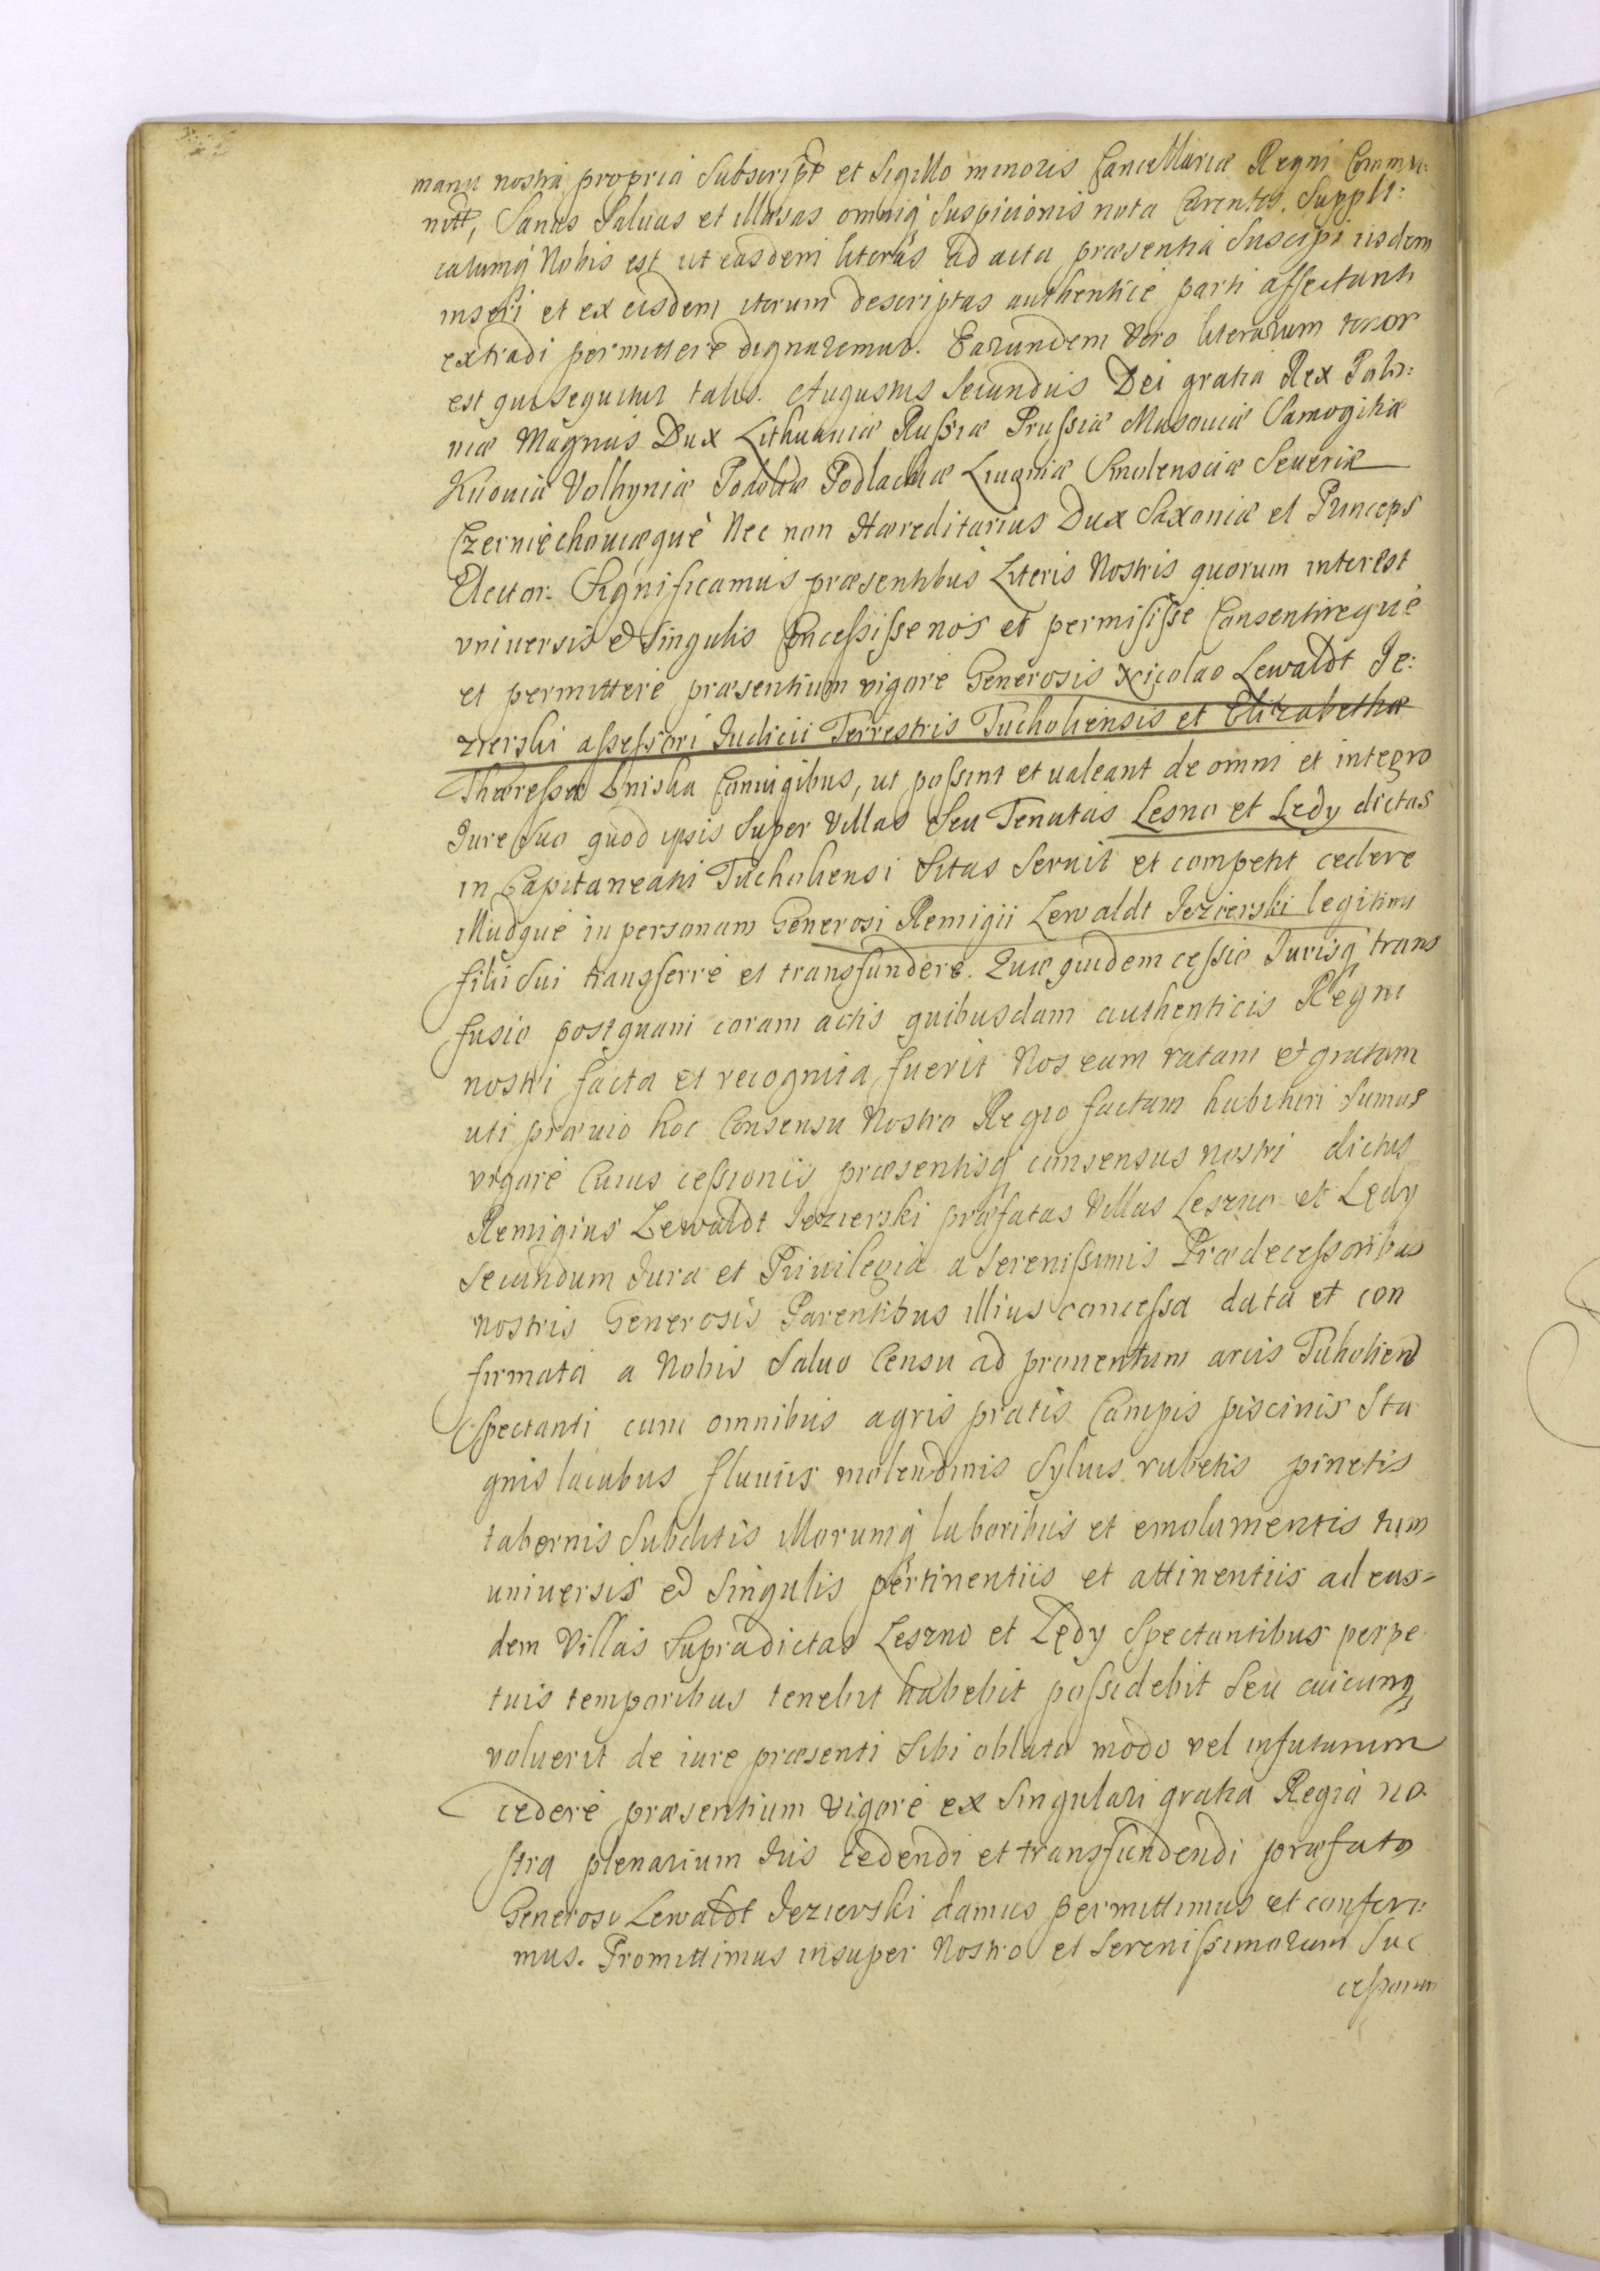 manu nostra propria Subscript et Sigillo minoris Cancellariæ Regni Commu:
nitt, Sanas Saluas et illæsas omniq Suspicionis nota Carentes. Suppli:
catumq Nobis est ut easdem literas ad acta præsentia Suscipi iisdem
inseri et ex eisdem iterum descriptas authenticè parti affectanti
extradi permittere dignaremur. Earundem vero literarum tenor
est qui sequitur talis. Augustus Secundus Dei gratia Rex Polo:
niæ Magnus Dux Lithuaniæ Russiæ Prussiæ Masouiæ Samogitiæ
Kiiouiæ Volhyniæ Podoliæ Podlachiæ Liuoniæ Smolensciæ Seueriæ
Czerniechouiæque Nec non Hæreditarius Dux Saxoniæ et Princeps
Elector. Significamus præsentibus Literis Nostris quorum interest
vniuersis et Singulis Concessisse nos et permisisse Consentireque
et permittere præsentium vigore Generosis Nicolao Lewaldt Je:
zierski assessori Judicii Terrestris Tucholiensis et Elizabethæ
Thæressæ Gniska Coniugibus, ut possint et ualeant de omni et integro
Jure Suo quod ipsis Super Villas Seu Tenutas Lesno et Lędy dictas
in Capitaneatu Tucholiensi Sitas Seruit et competit cedere
illudque in personam Generosi Remigii Lewaldt Jezierski legitimi
filii Sui transferre et transfundere. Quæ quidem cessio Jurisq trans
fusio postquam coram actis quibusdam authenticis Regni
nostri facta et recognita fuerit Nos eam ratam et gratam
uti præuio hoc Consensu Nostro Regio factam habituri Sumus
vigore Cuius cessionis præsentisq consensus nostri dictus
Remigius Lewaldt Jezierski præfatas Villas Leszno et Lędy
Secundum Jura et Priuilegia a Serenissimis Prædecessoribus
nostris Generosis Parentibus illius concessa data et con
firmata a Nobis Saluo Censu ad prouentum arcis Tuholien
Spectanti cum omnibus agris pratis Campis piscinis Sta
gnis lacubus fluuiis molendinis Syluis rubetis pinetis
tabernis Subditis illorumq laboribus et emolumentis tum
uniuersis et Singulis pertinentiis et attinentiis ad eas=
dem Villas Supradictas Leszno et Lędy Spectantibus perpe
tuis temporibus tenebit habebit possidebit Seu cuicunq
voluerit de iure præsenti Sibi oblato modo vel in futurum
cedere præsentium vigore ex Singulari gratia Regia no
stra plenarium Jus cedendi et transfundendi præfato
Generoso Lewaldt Jezierski damus permittimus et conferi:
mus. Promittimus insuper Nostro et Serenissimorum Suc
cessorum